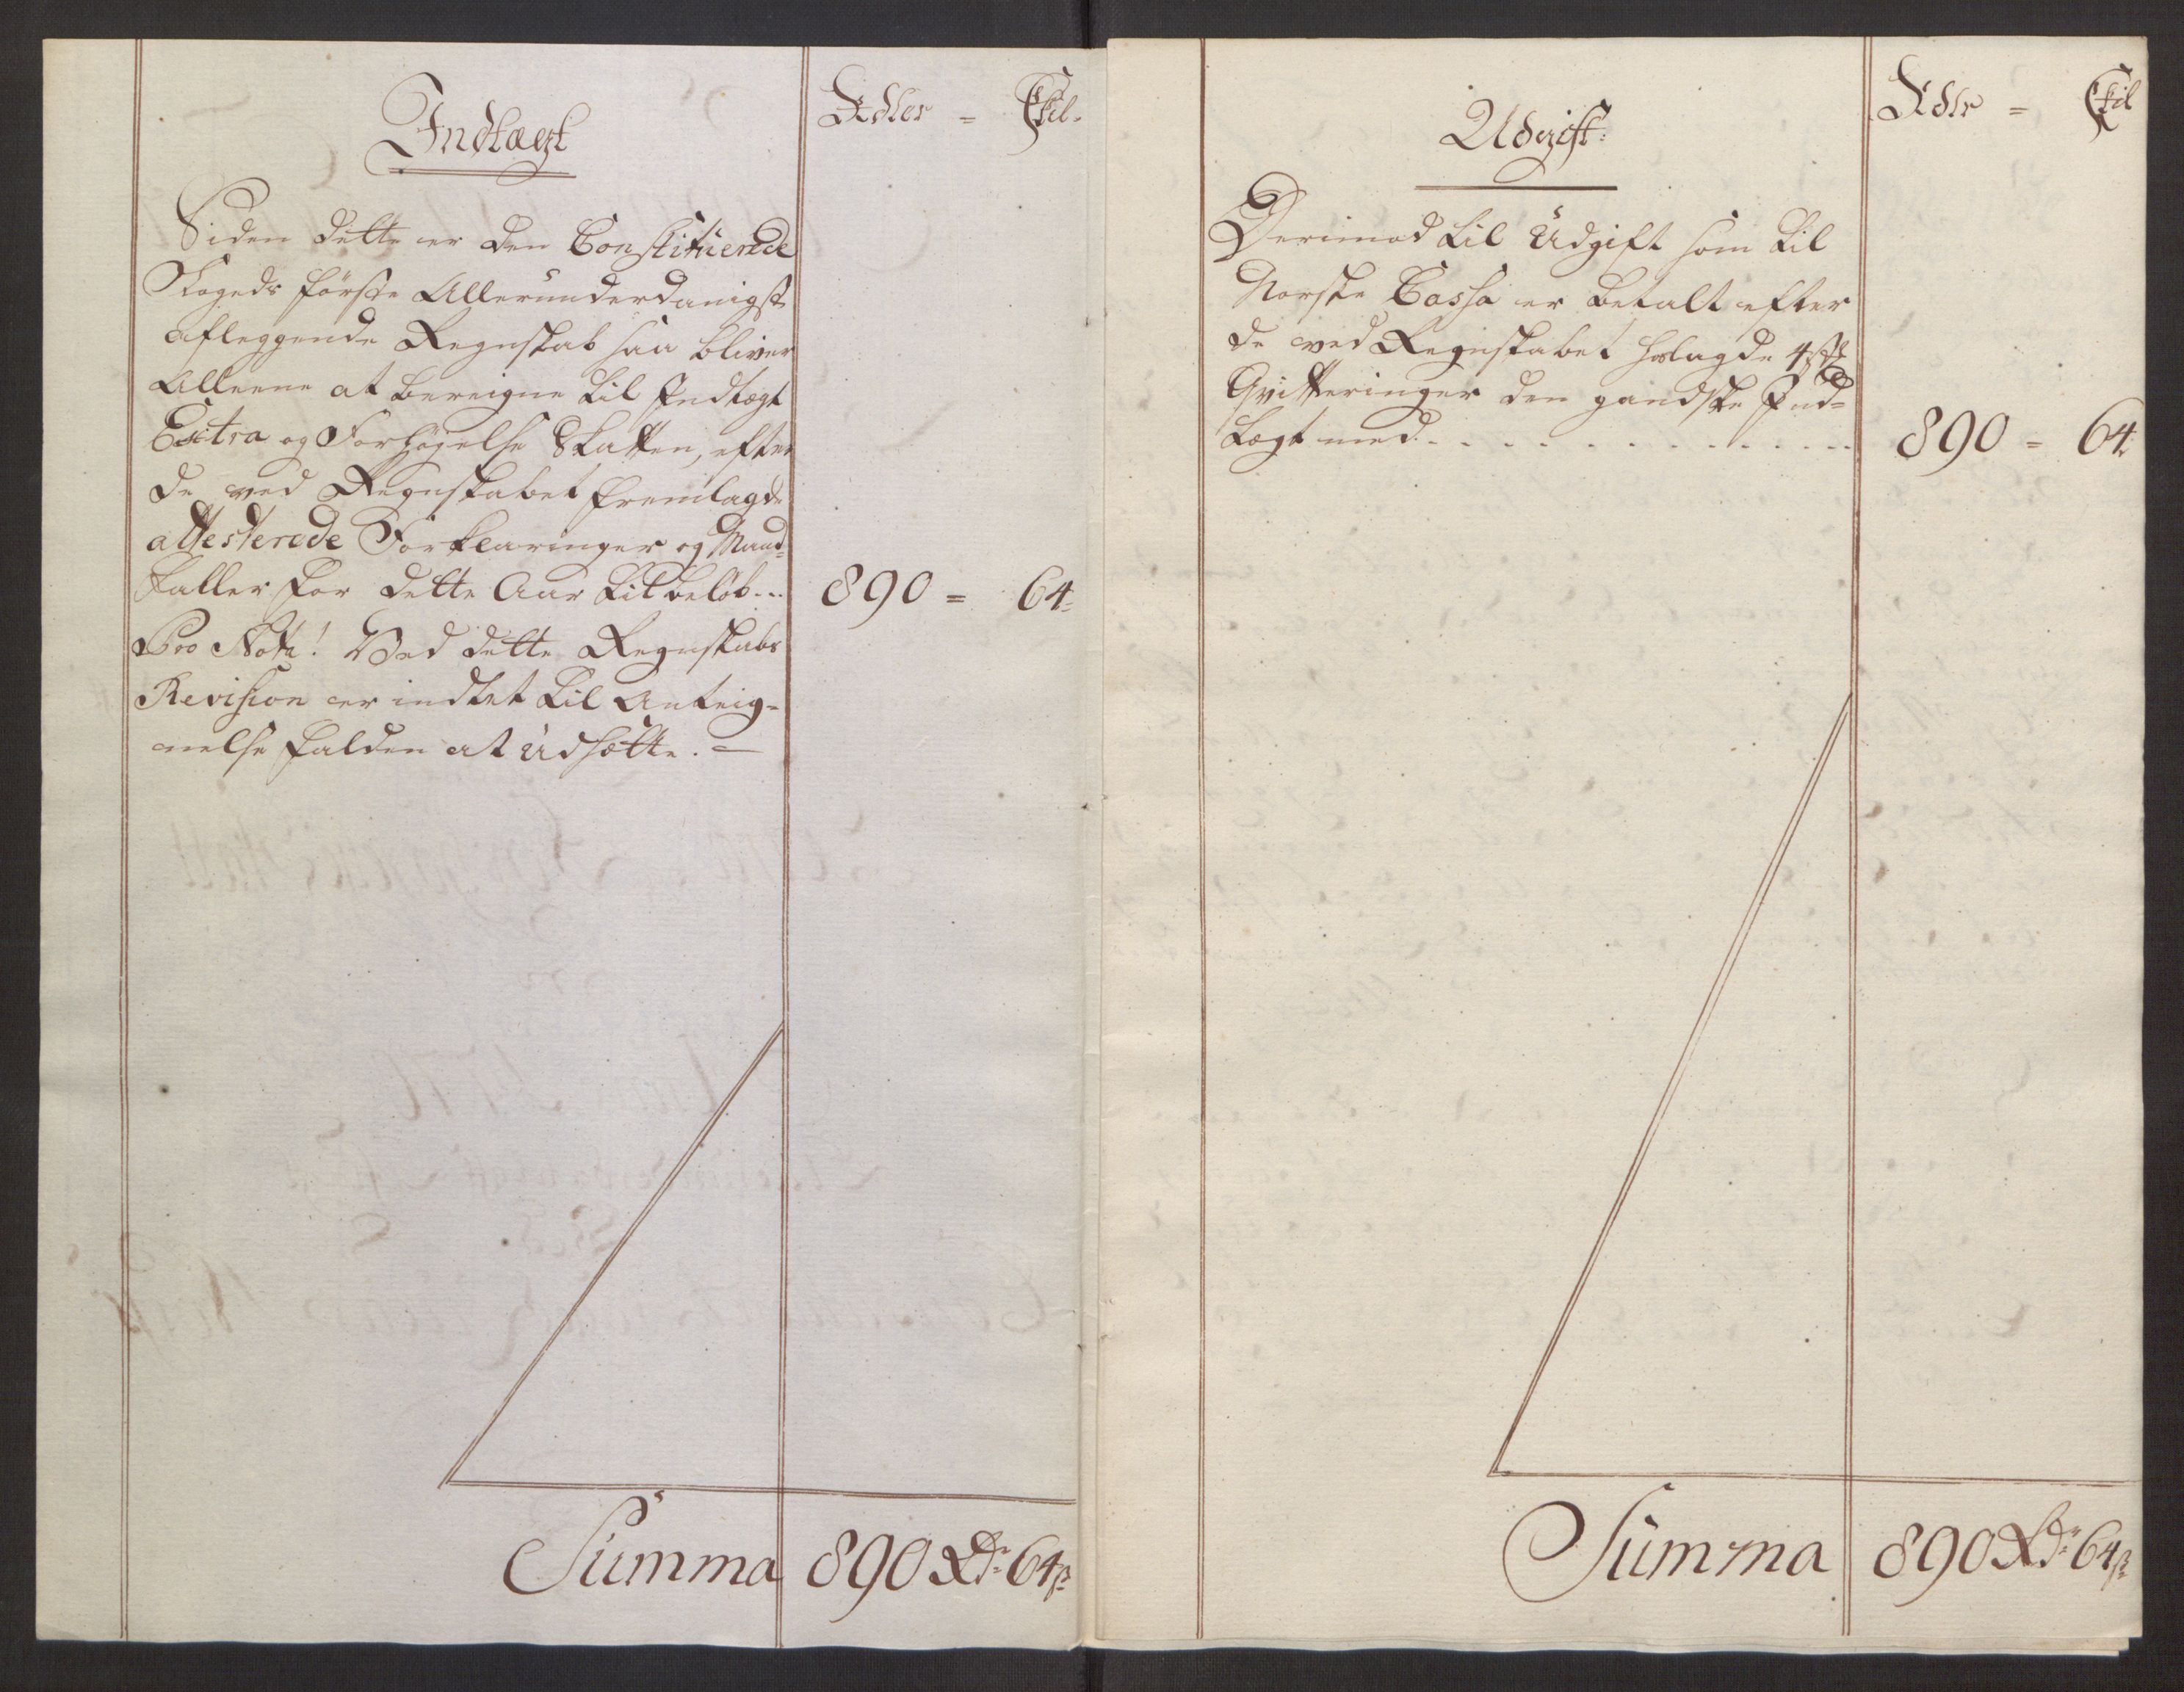 Indtægt
Rdler = Skil.
Siden dette er den Constituerede
Fogeds første Allerunderdanigst
aflæggende Regnskab saa bliver
Alleene at bereigne til Indtægt
Extra og Forhøyelse Skatten, efter
de ved Regnskabet fremlagde
attesterede Forklaringer og Mand-
taller for dette Aar til beløb... 890 = 64-
Pro Nota! Ved dette Regnskabs
Revision er indtet til Anteig-
nelse falden at Udsætte. —
Summa 890 Rd 64 s
Udgift:
Rdlr = Skil
Derimod til Udgift som til
Norske Cassa er betalt efter
de ved Regnskabet hoslagde 4
Qvitteringer den gandske Ind-
tægt med . . . . . . . . . . 890 = 64
Summa 890 Rd 64 s